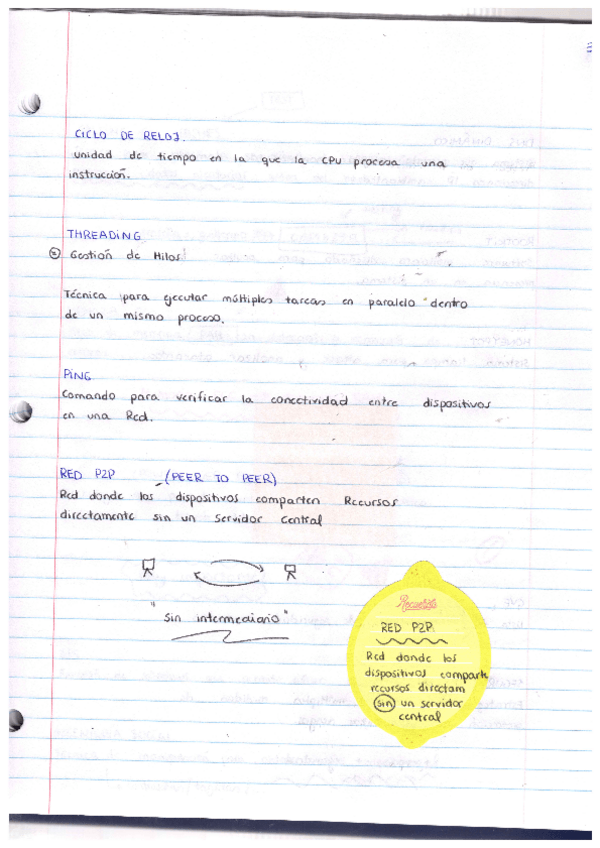 CICLO DE RELOJ.
unidad de tiempo en la que la CPU procesa una
instrucción.
THREADING
Gestión de Hilos
Técnica para ejecutar múltiples tareas en paralelo dentro
de un mismo proceso.
PING
Comando para verificar la conectividad entre dispositivos
en una Red.
RED P2P (PEER TO PEER)
Red donde los dispositivos comparten Recursos
directamente sin un servidor central
"Sin intermediario"
Recuerda
RED P2P.
Red donde los
dispositivos comparte
recursos directam
sin un servidor
central